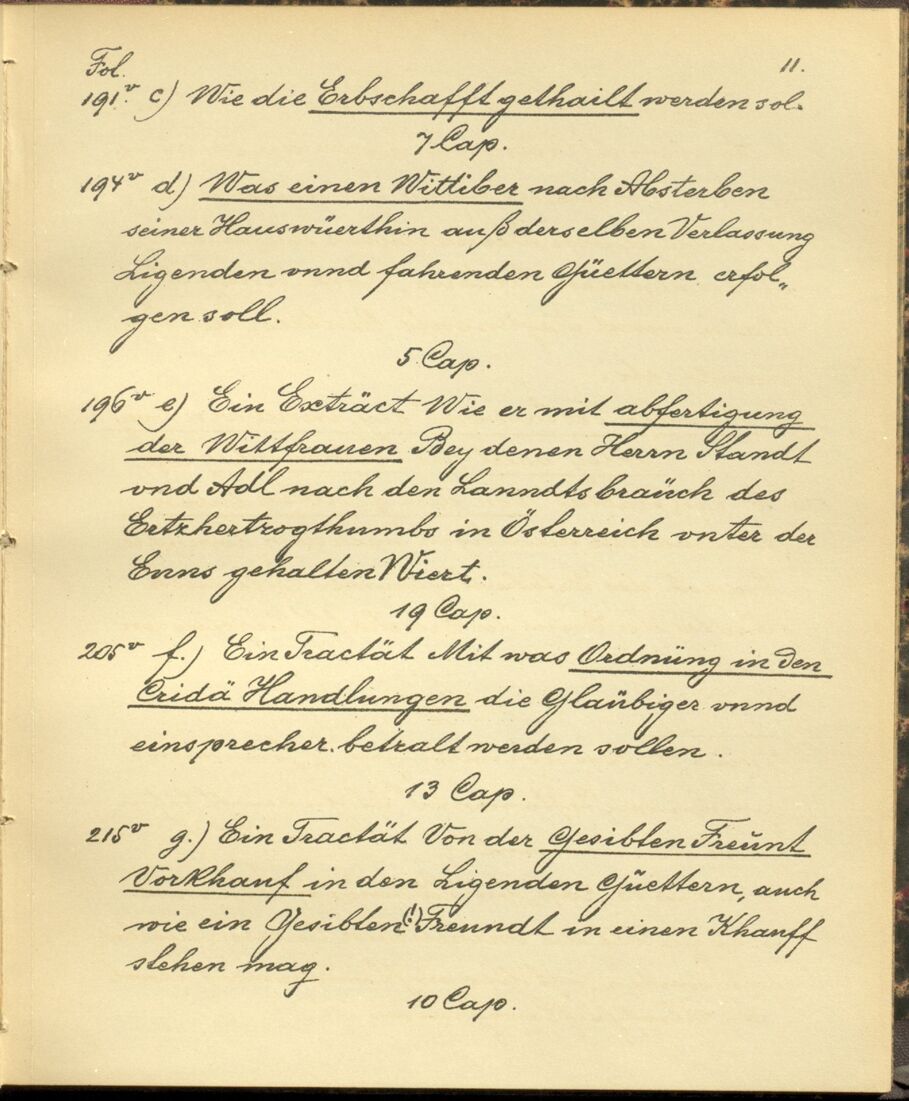 Fol. 11.
191v. c) Wie die Erbschafft gethailt werden sol.
7 Cap.
194v d) Was einen Wittiber nach Absterben
seiner Hauswüerthin auß derselben Verlassung
Ligenden vnnd fahrenden Güettern erfol„
gen soll.
5 Cap.
196v e) Ein Exträct Wie er mit abfertigung
der Wittfrauen Bey denen Herrn Standt
vnd Adl nach den Lanndtsbraüch des
Ertzhertzogthumbs in Österreich vnter der
Enns gehalten Wiert.
19 Cap.
205v f.) Ein Tractät Mit was Ordnüng in den
Cridä Handlungen die Glaübiger vnnd
einsprecher betzalt werden sollen.
13 Cap.
215v g.) Ein Tractät Von der Gesibten Freünt
Vorkhauf in den Ligenden Güettern, auch
wie ein Gesibten(!) Freundt in einen Khauff
stehen mag.
10 Cap.